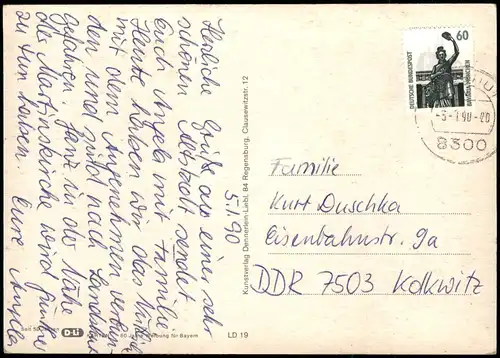 5.1.90
Herzliche Grüße aus einer sehr
schönen Altstadt sendet
Euch Angela mit Familie.
Heute haben wir das Nützliche
mit dem Angenehmen verbun-
den und sind nach Landshut
gefahren. Hans in der Nähe
die Martinskirche wird
zu tun haben. Eure Angela
Kunstverlag Dennerlein-Liebl, 84 Regensburg, Clausewitzstr. 12
D-Li
LD 19
60
DEUTSCHE BUNDESPOST
BAVARIA MÜNCHEN
-5.-1.90-20
8300
Familie
Kurt Duschka
Eisenbahnstr. 9a
DDR 7503 Kolkwitz